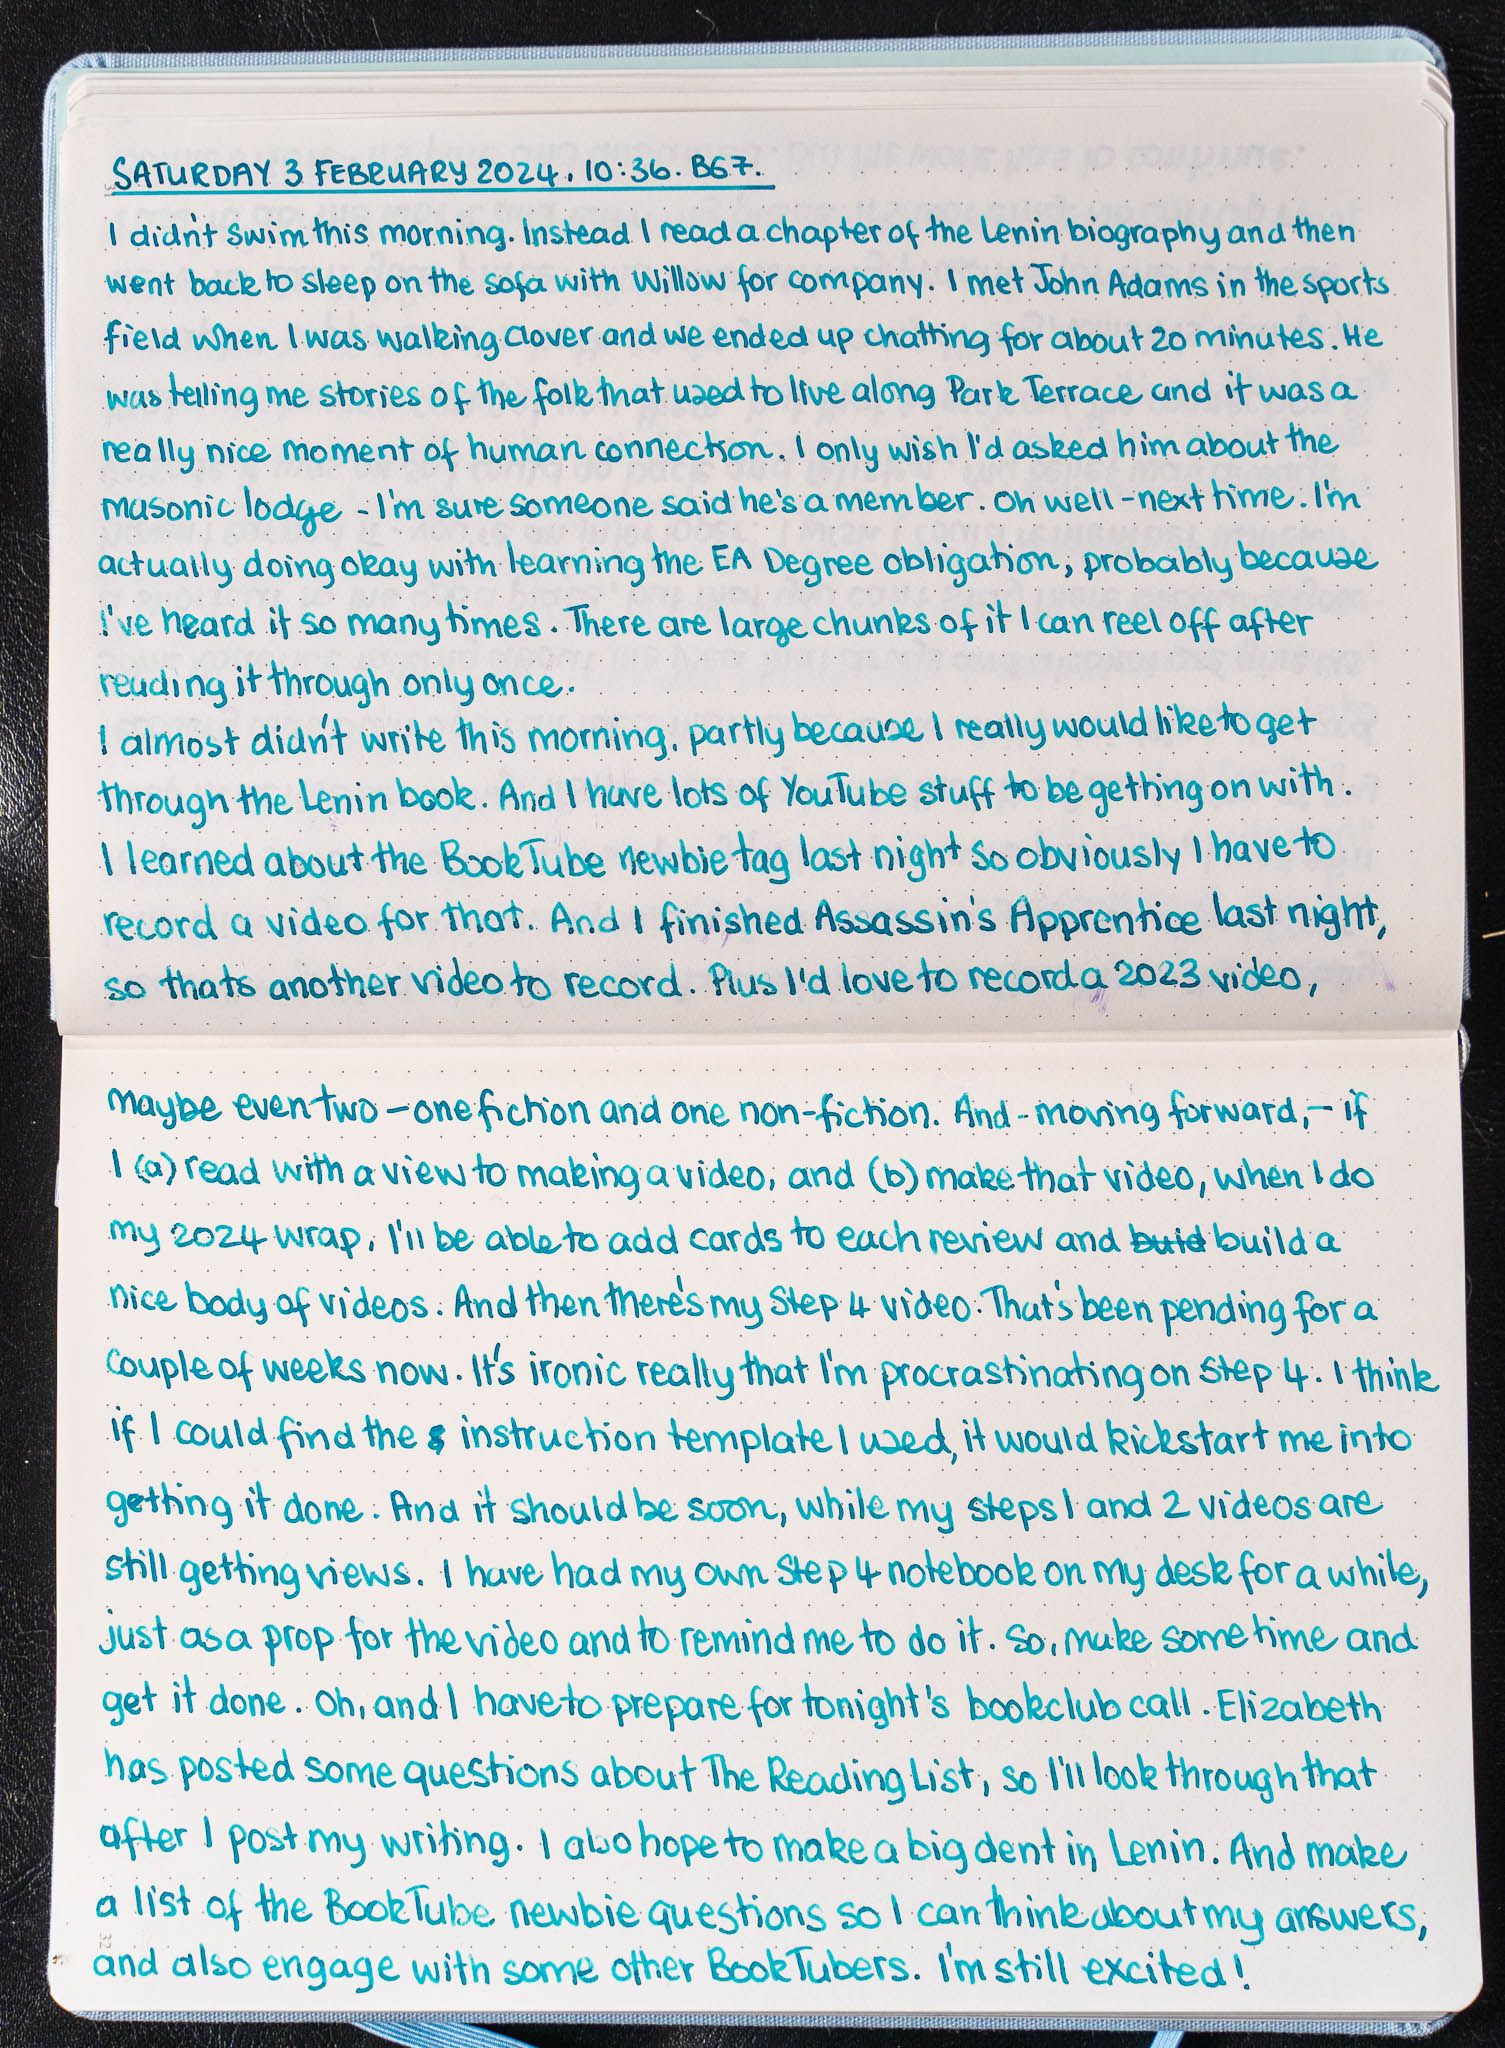 SATURDAY 3 FEBRUARY 2024. 10:36. B67.
I didn't swim this morning. Instead I read a chapter of the Lenin biography and then
went back to sleep on the sofa with Willow for company. I met John Adams in the sports
field when I was walking Clover and we ended up chatting for about 20 minutes. He
was telling me stories of the folk that used to live along Park Terrace and it was a
really nice moment of human connection. I only wish I'd asked him about the
masonic lodge - I'm sure someone said he's a member. Oh well - next time. I'm
actually doing okay with learning the EA Degree obligation, probably because
I've heard it so many times. There are large chunks of it I can reel off after
reading it through only once.
I almost didn't write this morning, partly because I really would like to get
through the Lenin book. And I have lots of YouTube stuff to be getting on with.
I learned about the BookTube newbie tag last night so obviously I have to
record a video for that. And I finished Assassin's Apprentice last night,
so thats another video to record. Plus I'd love to record a 2023 video,
maybe even two - one fiction and one non-fiction. And - moving forward, - if
I (a) read with a view to making a video, and (b) make that video, when I do
my 2024 wrap, I'll be able to add cards to each review and buid build a
nice body of videos. And then there's my Step 4 video. That's been pending for a
couple of weeks now. It's ironic really that I'm procrastinating on Step 4. I think
if I could find the s instruction template I used, it would kickstart me into
getting it done. And it should be soon, while my steps 1 and 2 videos are
still getting views. I have had my own Step 4 notebook on my desk for a while,
just as a prop for the video and to remind me to do it. So, make some time and
get it done. Oh, and I have to prepare for tonight's bookclub call. Elizabeth
has posted some questions about The Reading List, so I'll look through that
after I post my writing. I also hope to make a big dent in Lenin. And make
a list of the BookTube newbie questions so I can think about my answers,
and also engage with some other BookTubers. I'm still excited!
32